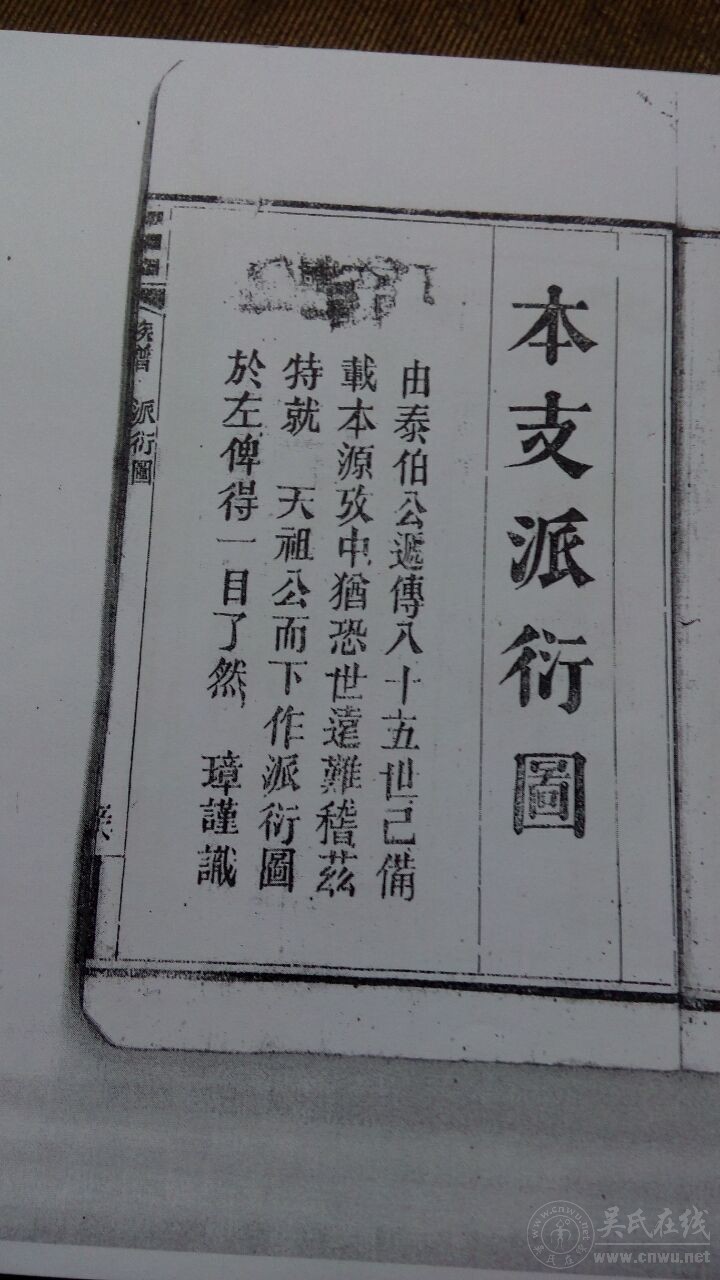 本支派衍圖
由泰伯公遞傳八十五世已備
載本源攷中猶恐世遠難稽茲
特就 天祖公而下作派衍圖
於左俾得一目了然 璋謹識
族譜 派衍圖
吴氏在线
www.cnwu.net